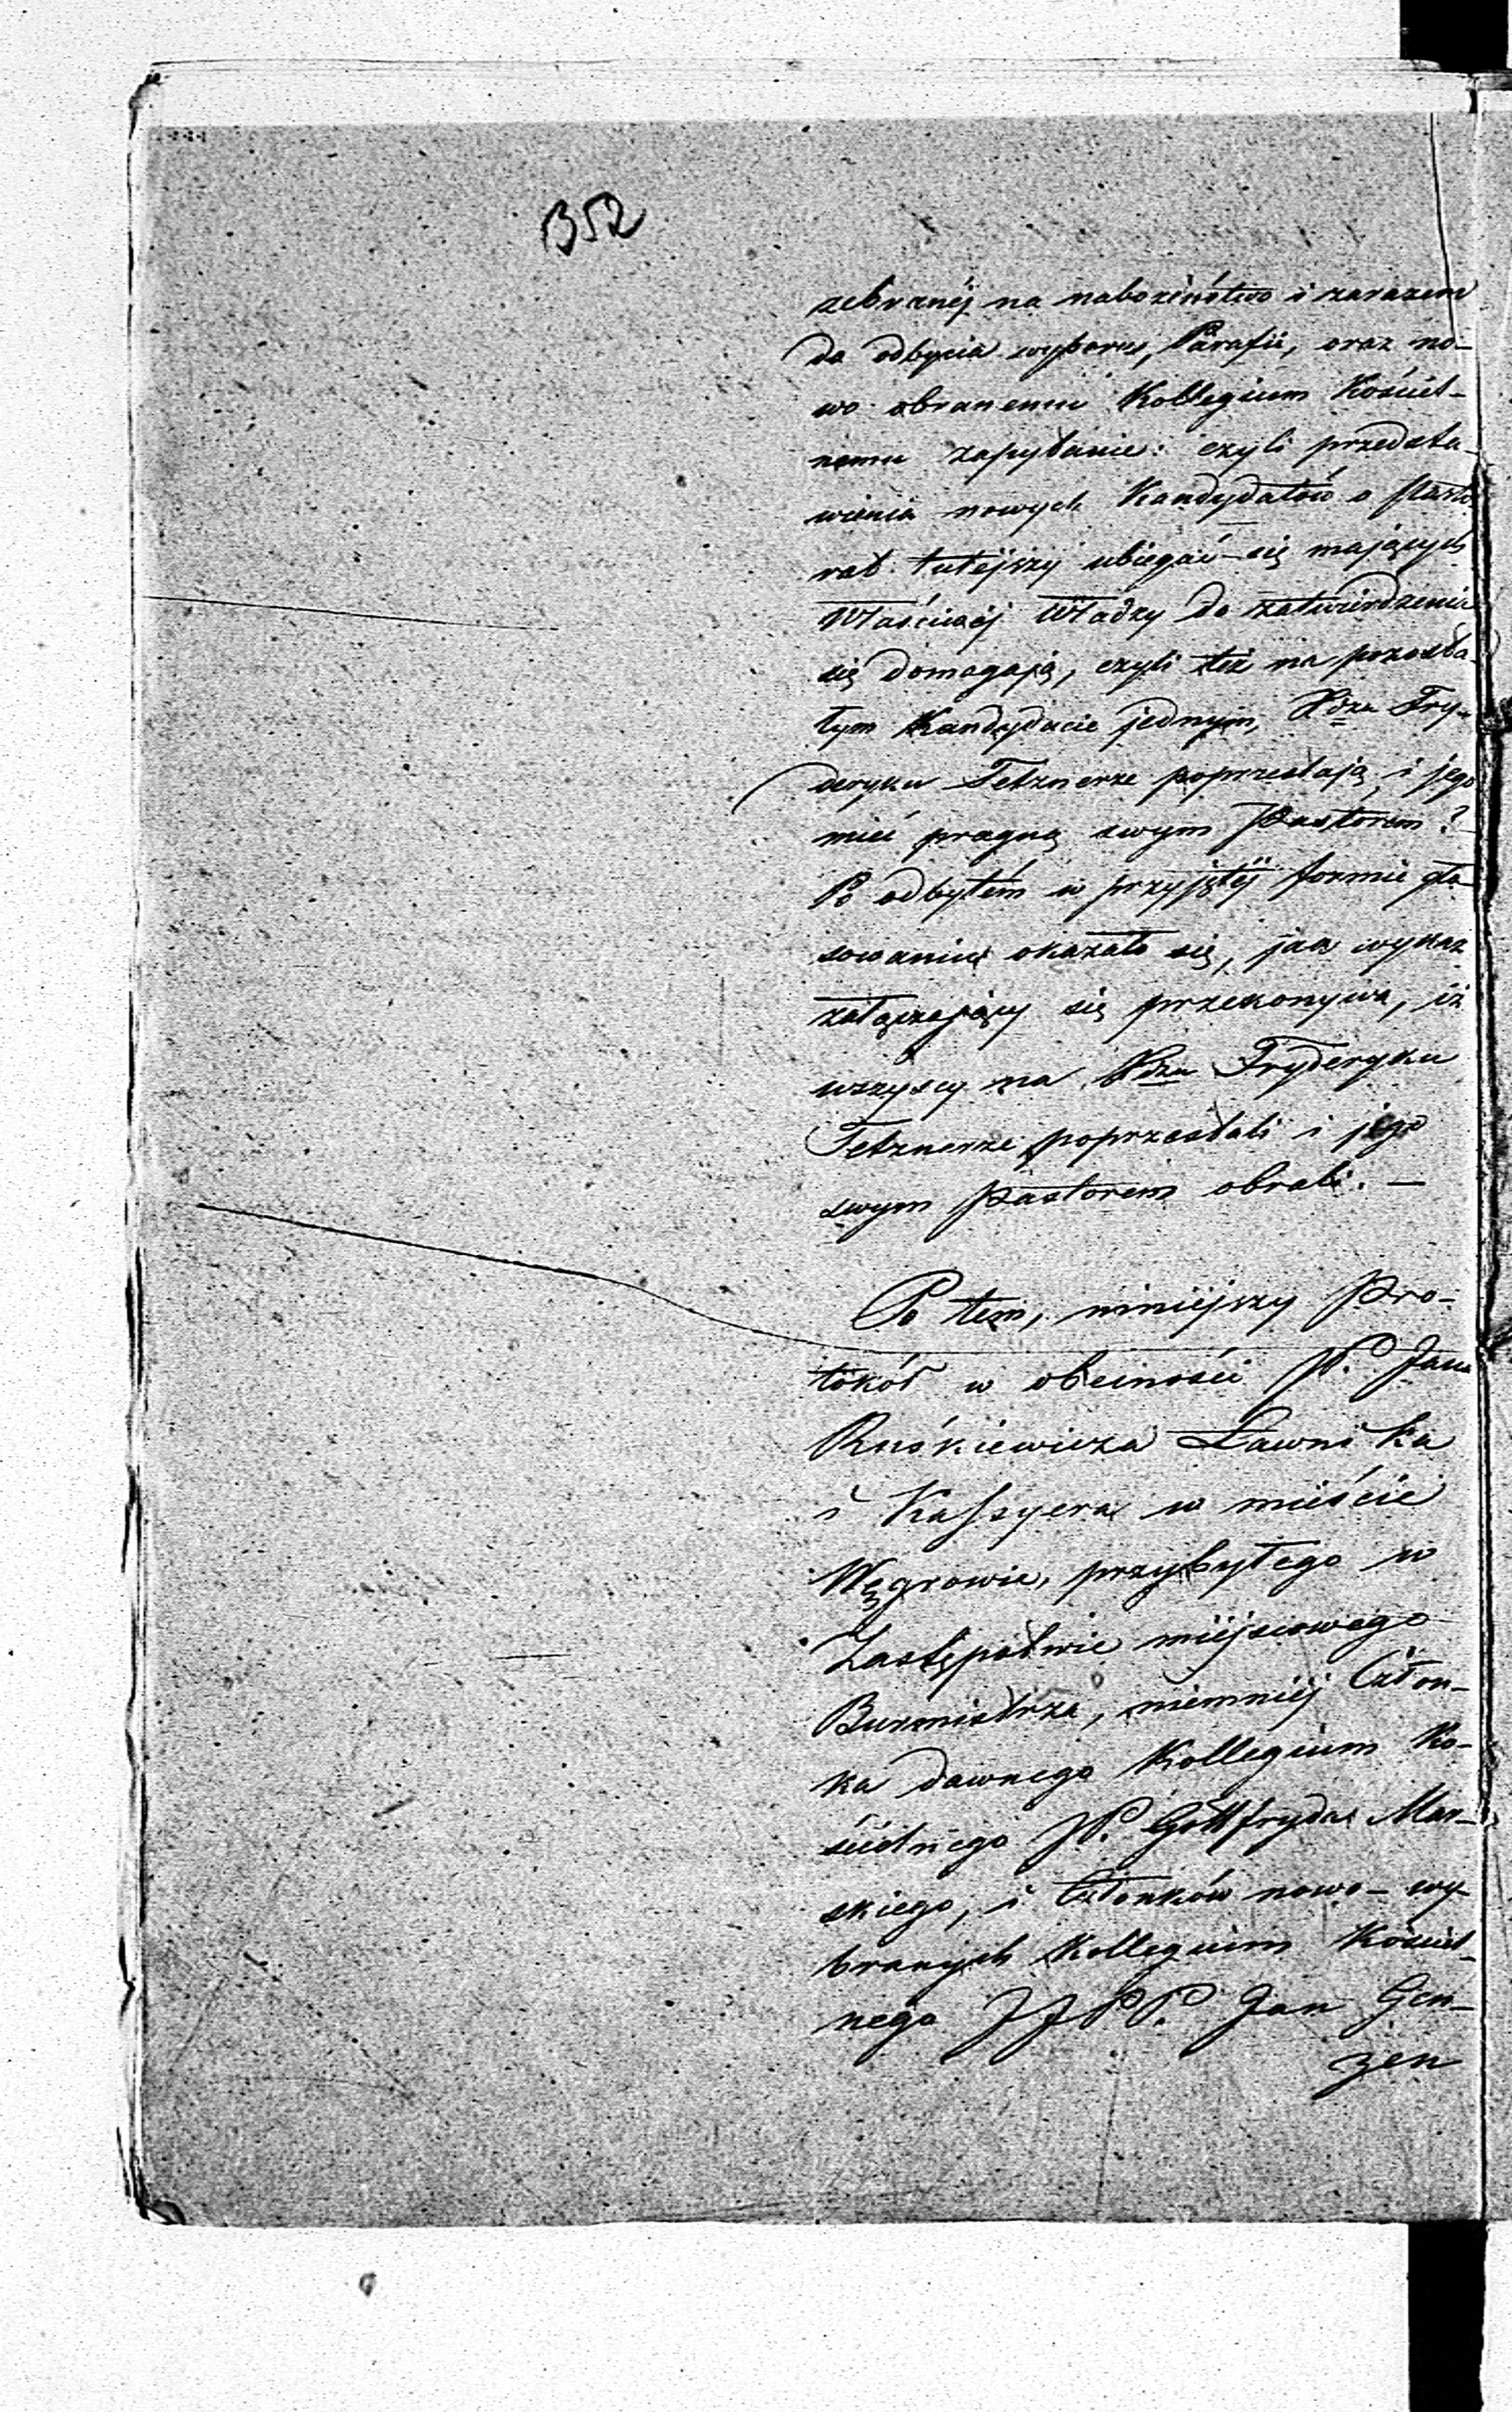 352
zebranéj na nabożeństwo i zarazem
do odbycia wyboru, Parafii, oraz no-
wo obranemu Kollegium Kościel-
nemu zapytanie: czyli przedsta-
wienia nowych Kandydatów o Pasto
rat tutéjszy ubiegać się mających
Właściwéj Władzy do zatwierdzenia
się domagają, czyli téż na pozosta-
łym Kandydacie jednym, Xdzu Fry-
deryku Tetznerze poprzestają i jego
mieć pragną swym Pastorem?
Po odbytém w przyjętéj formie gło-
sowaniu okazało się, jak wykaz
załączający się przekonywa, iż
wszyscy na Xdzu Fryderyku
Tetznerze poprzestali i jego
swym Pastorem obrali. —
Po tem, niniejszy Pro-
tokół w obecności JP. Jana
Ruśkiewicza Ławnika
i Kassyera w mieście
Węgrowie, przybyłego w
Zastępstwie miéjscowego
Burmistrza, niemniéj Człon-
ka dawnego Kollegium Ko-
ścielnego JP. Gottfryda Mar-
skiego, i Członków nowo-wy-
branych Kollegium Kościel-
nego JJPP. Jan Gen-
zen